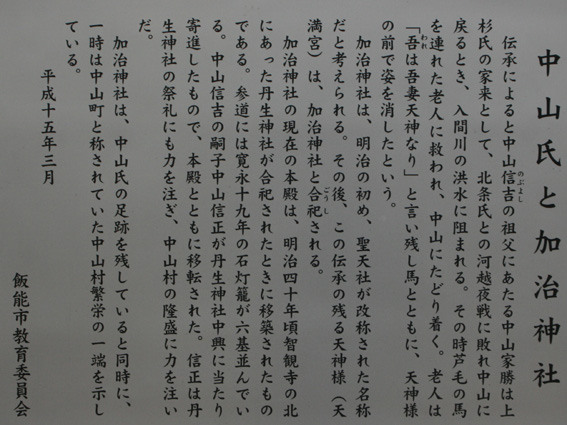 中山氏と加治神社
伝承によると中山信吉の祖父にあたる中山家勝は上
のぶよし
杉氏の家来として、北条氏との河越夜戦に敗れ中山に
戻るとき、入間川の洪水に阻まれる。その時芦毛の馬
を連れた老人に救われ、中山にたどり着く。老人は
「吾は吾妻天神なり」と言い残し馬とともに、天神様
われ
の前で姿を消したという。
加治神社は、明治の初め、聖天社が改称された名称
だと考えられる。その後、この伝承の残る天神様(天
満宮)は、加治神社と合祀される。
ごうし
加治神社の現在の本殿は、明治四十年頃智観寺の北
にあった丹生神社が合祀されたときに移築されたもの
である。参道には寛永十九年の石灯籠が六基並んでい
る。中山信吉の嗣子中山信正が丹生神社中興に当たり
寄進したもので、本殿とともに移転された。信正は丹
生神社の祭礼にも力を注ぎ、中山村の隆盛に力を注い
だ。
加治神社は、中山氏の足跡を残していると同時に、
一時は中山町と称されていた中山村繁栄の一端を示し
ている。
平成十五年三月
飯能市教育委員会